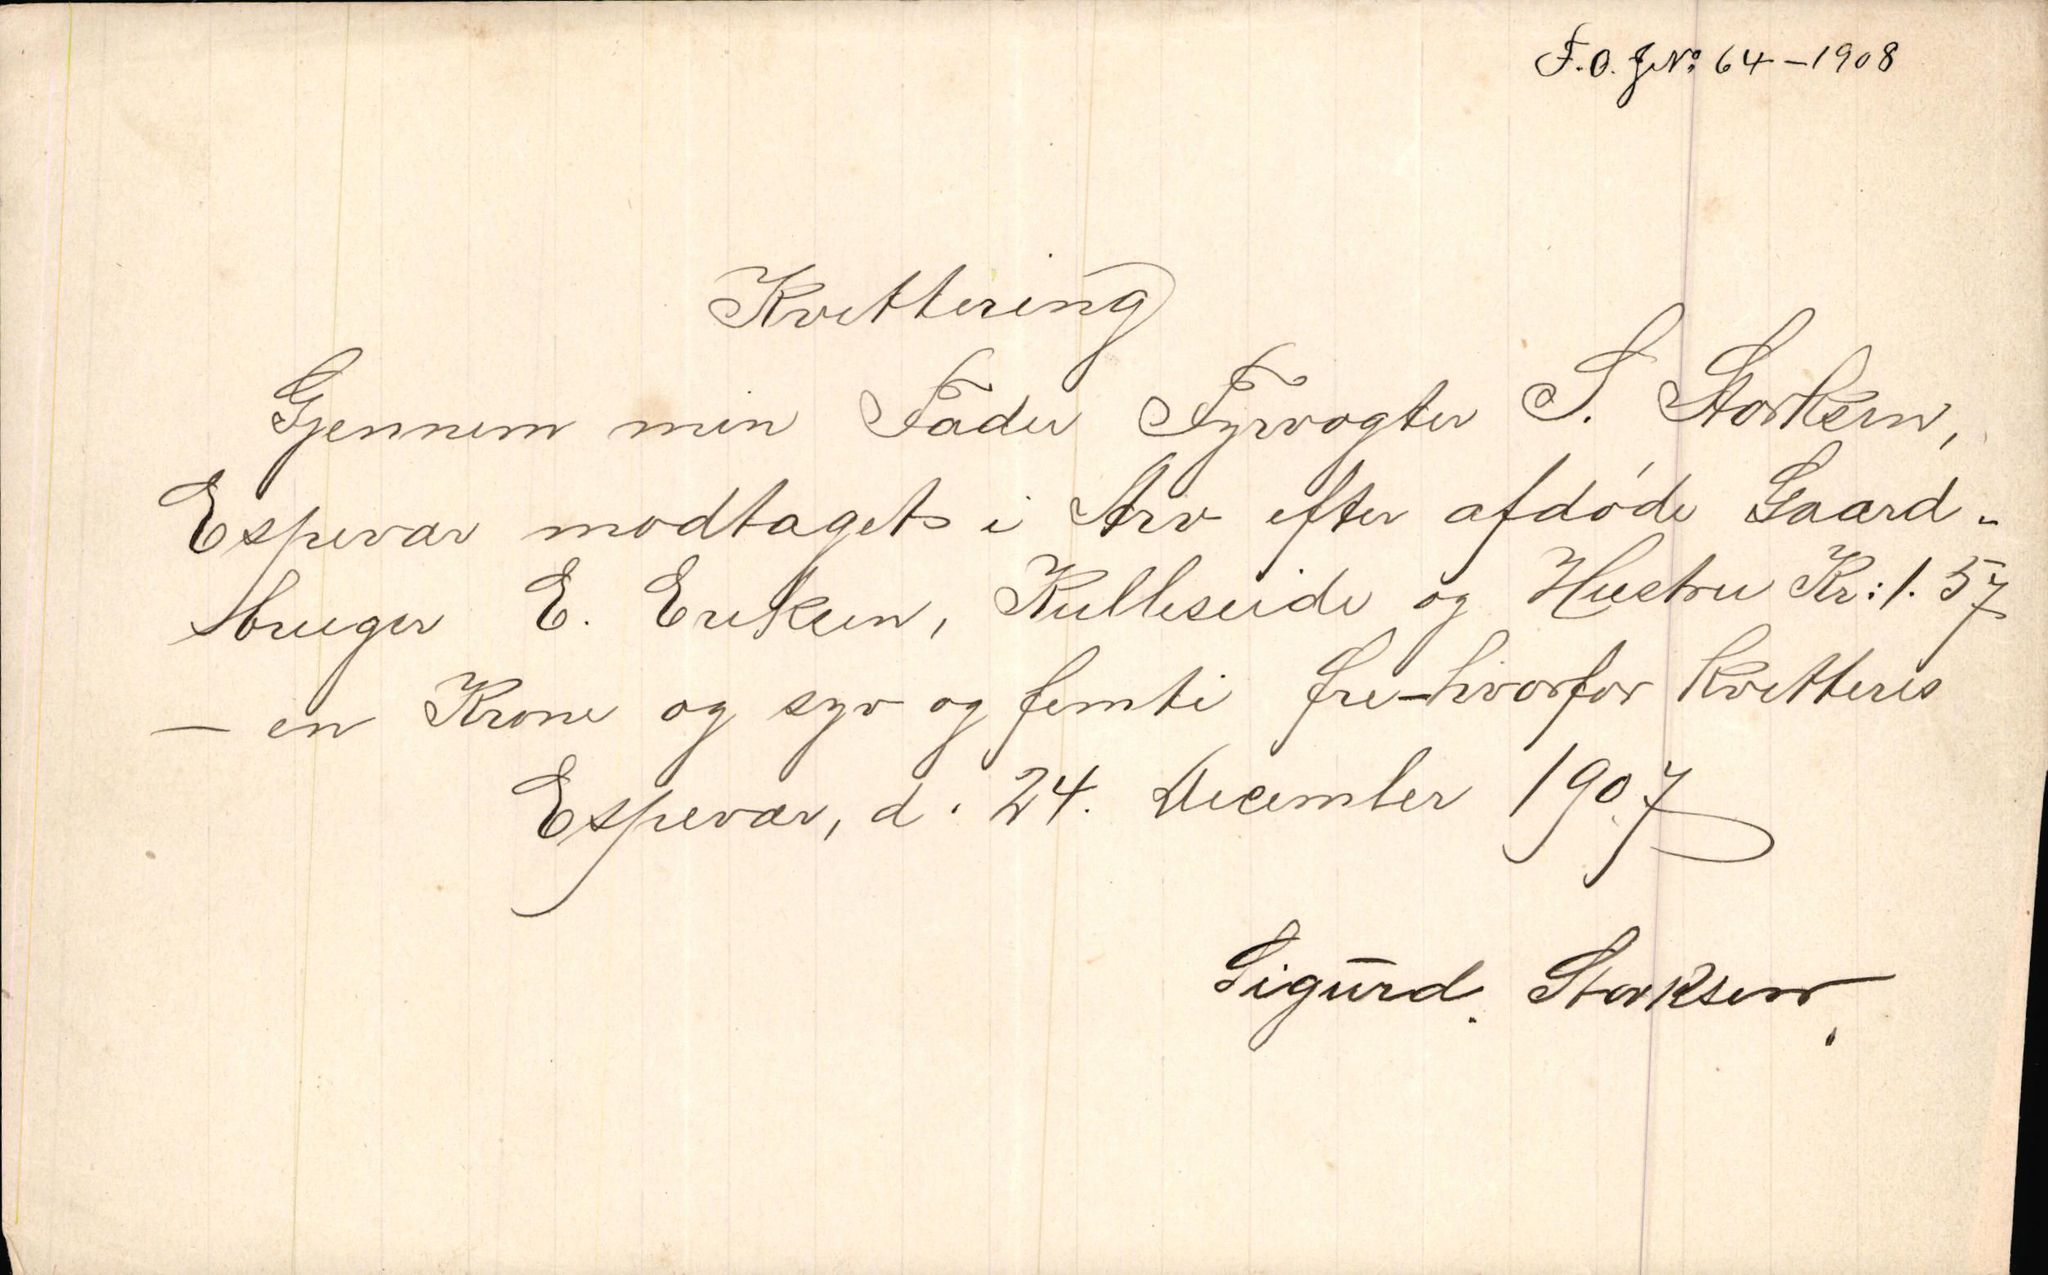 F.O. JNo. 64 – 1908
Kvittering
Gjennem min Fader Fyrvogter S. Storksen,
Espevær modtaget i Arv efter afdøde Gaard-
bruger E. Eriksen, Kulleseide og Hustru Kr: 1.57
– en Krone og syv og femti Øre – hvorfor kvitteres
Espevær, d. 24. December 1907
Sigurd Storksen.